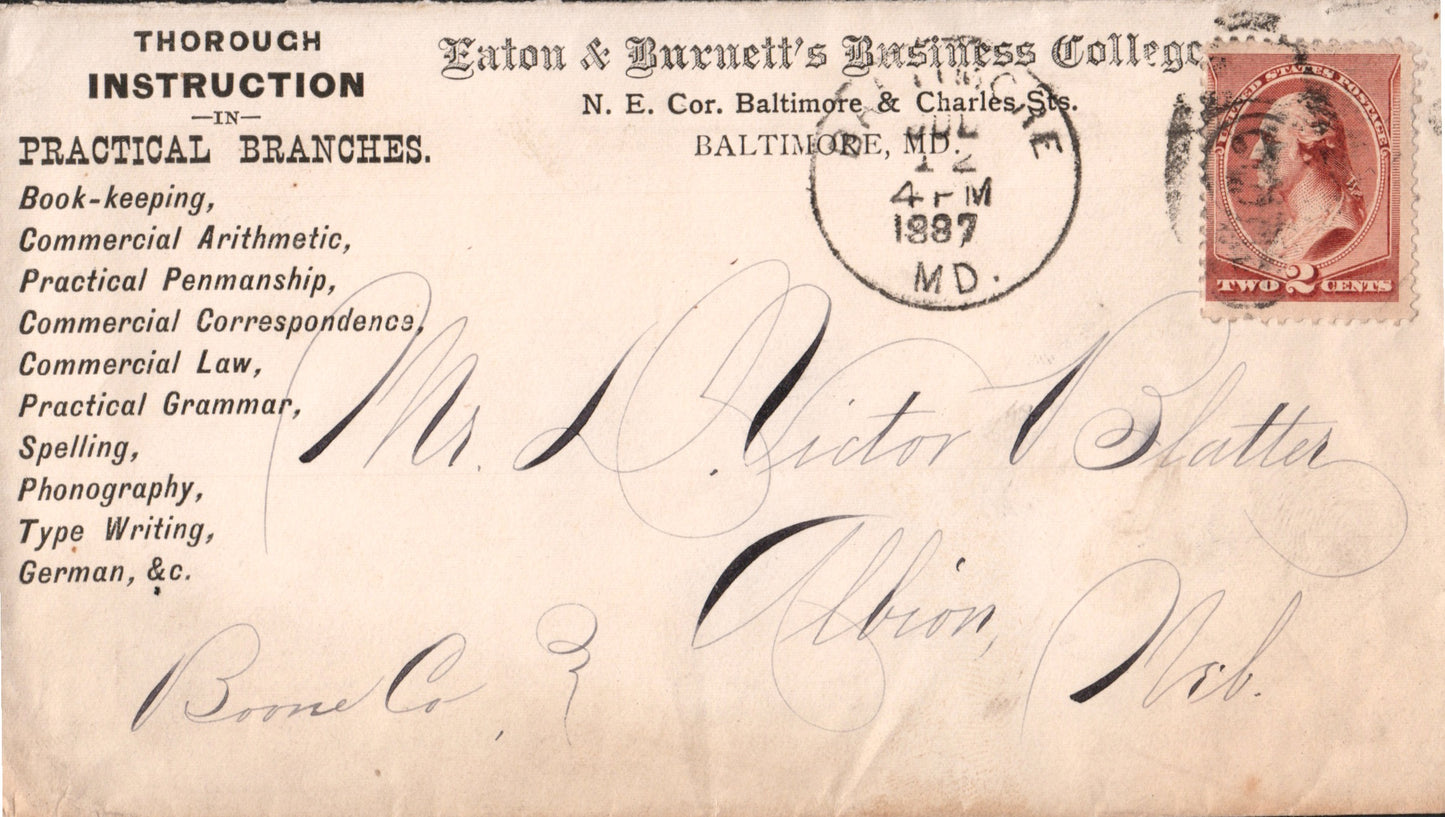 THOROUGH
INSTRUCTION
—IN—
PRACTICAL BRANCHES.
Book-keeping,
Commercial Arithmetic,
Practical Penmanship,
Commercial Correspondence,
Commercial Law,
Practical Grammar,
Spelling,
Phonography,
Type Writing,
German, &c.
Eaton & Burnett's Business College
N. E. Cor. Baltimore & Charles Sts.
BALTIMORE, MD.
BALTIMORE
JUL
12
4 PM
1887
MD.
UNITED STATES POSTAGE
TWO 2 CENTS
Mr. L. Victor Blatter
Albion, Neb.
Boone Co,